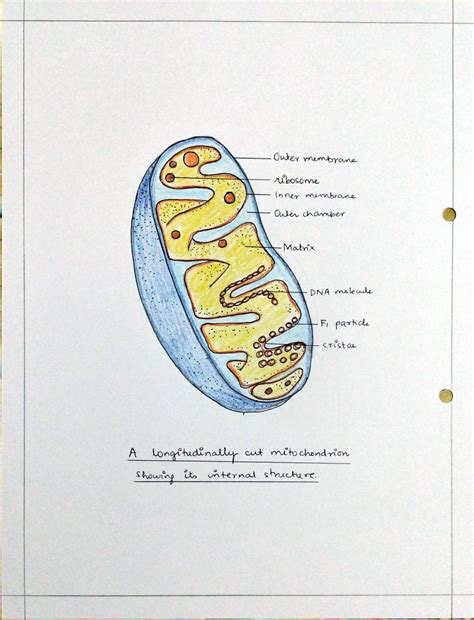 Outer membrane
ribosome
Inner membrane
Outer chamber
Matrix
DNA molecule
F1 particle
cristae
A longitudinally cut mitochondrion
showing its internal structure